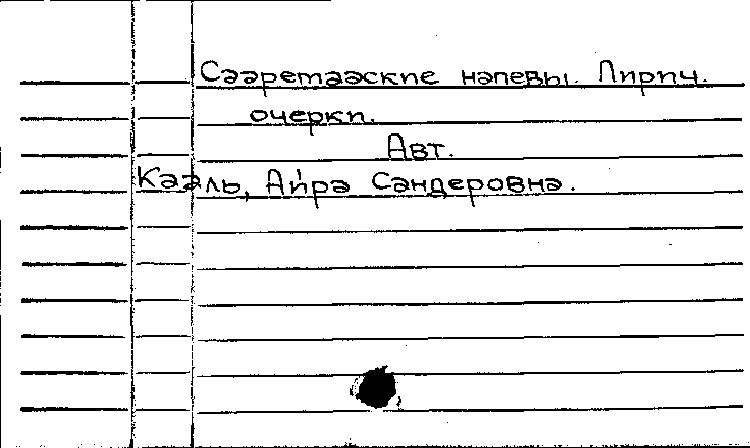 Сааремааские напевы. Лирич.
очерки.
Авт.
Кааль, Айра Сандеровна.